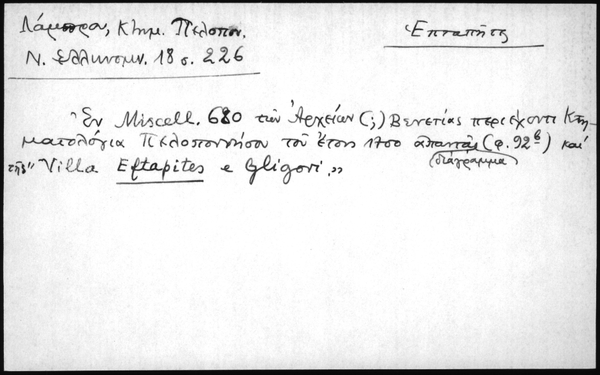 Λάμπρου, Κτημ. Πελοπον.
Ν. Ελληνομν. 18 σ. 226
Επταπήτης
Ἐν Miscell. 680 τῶν Ἀρχείων (;) Βενετίας περιέχοντι Κτη-
ματολόγια Πελοποννήσου τοῦ ἔτους 1700 ἀπαντᾷ (φ. 92β) καί
διάγραμμα
τῆς "Villa Eftapites e Gligori."